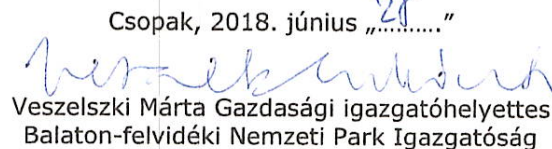 Csopak, 2018. június „28.”
Veszelszki Márta Gazdasági igazgatóhelyettes
Balaton-felvidéki Nemzeti Park Igazgatóság